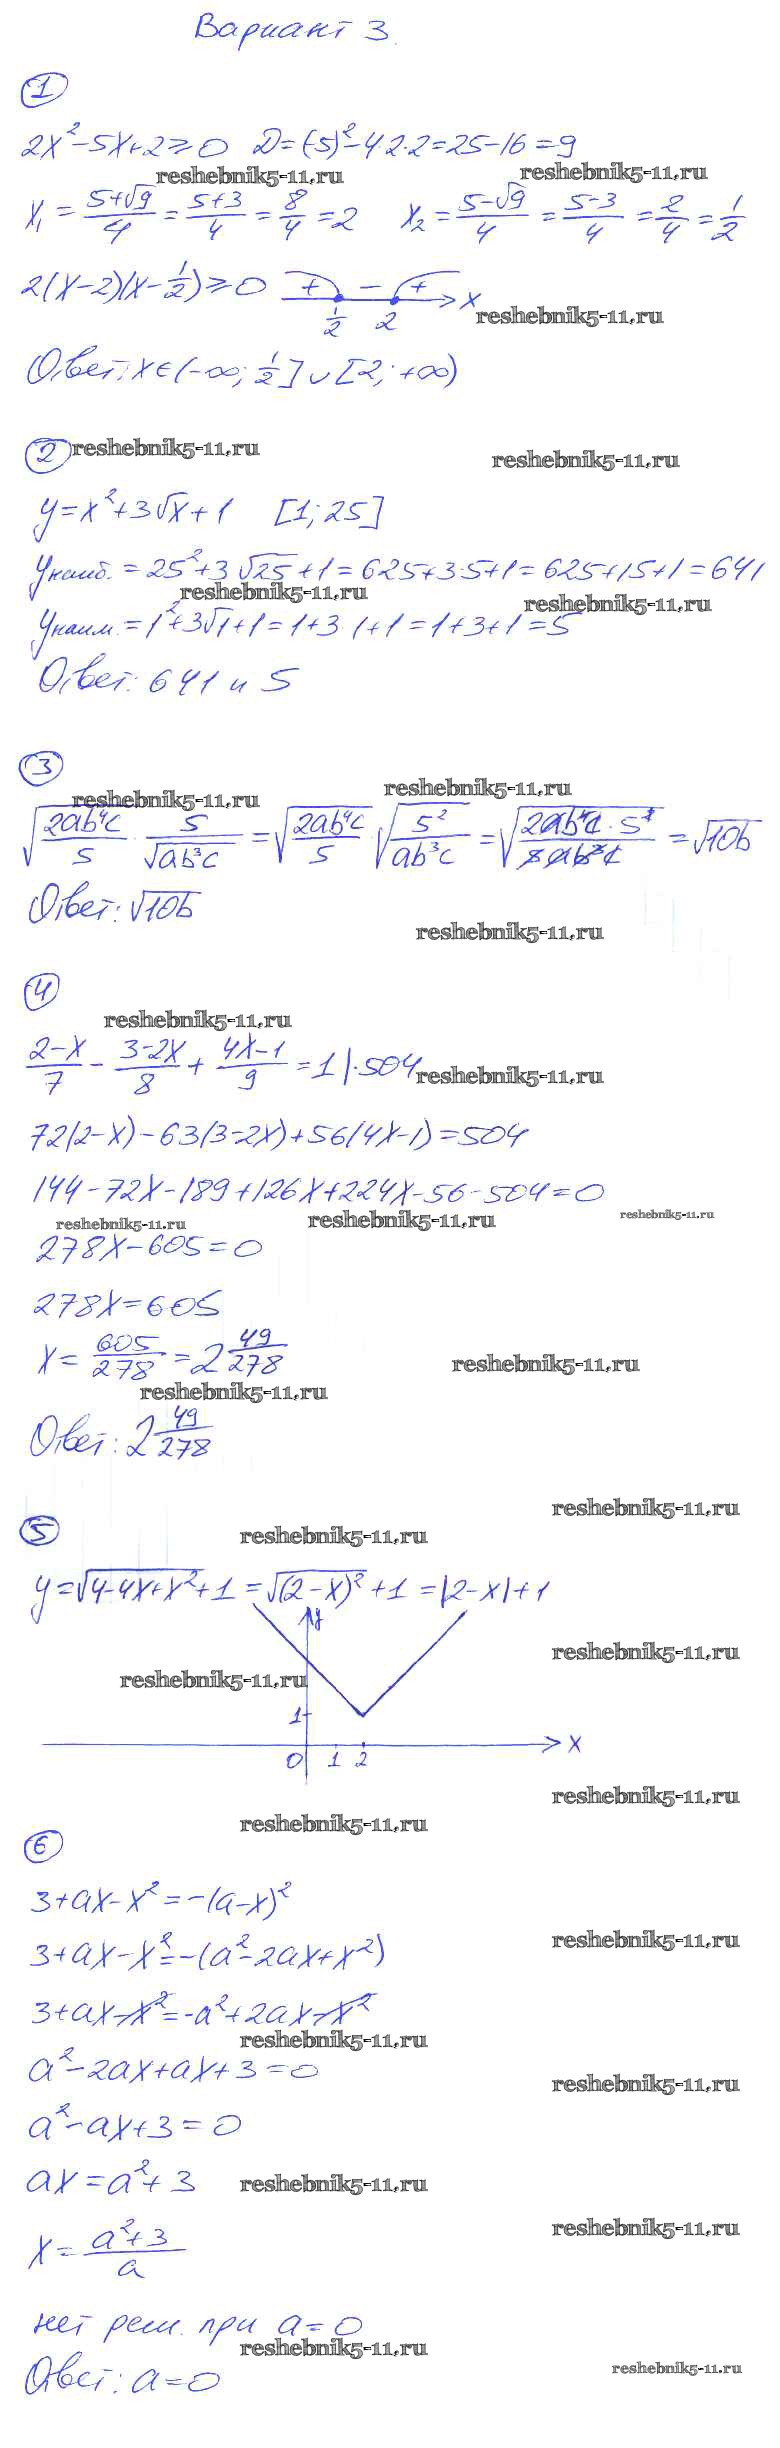 Вариант 3.
1
2x²-5x+2≥0 D=(-5)²-4·2·2=25-16=9
reshebnik5-11.ru reshebnik5-11.ru
x₁=(5+√9)/4=(5+3)/4=8/4=2 x₂=(5-√9)/4=(5-3)/4=2/4=1/2
2(x-2)(x-1/2)≥0 + - + x
1/2 2 reshebnik5-11.ru
Ответ: x∈(-∞; 1/2]∪[2; +∞)
2 reshebnik5-11.ru reshebnik5-11.ru
y=x²+3√x+1 [1; 25]
yнаиб.=25²+3√25+1=625+3·5+1=625+15+1=641
reshebnik5-11.ru reshebnik5-11.ru
yнаим.=1²+3√1+1=1+3·1+1=1+3+1=5
Ответ: 641 и 5
3
reshebnik5-11.ru reshebnik5-11.ru
√(2ab⁴c/5) · 5/√(ab³c) = √(2ab⁴c/5) √(5²/(ab³c)) = √(2ab⁴c·5²/(5ab³c)) = √10b
Ответ: √10b
reshebnik5-11.ru
4
reshebnik5-11.ru
(2-x)/7 - (3-2x)/8 + (4x-1)/9 = 1 |·504
reshebnik5-11.ru
72(2-x)-63(3-2x)+56(4x-1)=504
144-72x-189+126x+224x-56-504=0
reshebnik5-11.ru reshebnik5-11.ru reshebnik5-11.ru
278x-605=0
278x=605
x=605/278=2 49/278
reshebnik5-11.ru
reshebnik5-11.ru
Ответ: 2 49/278
reshebnik5-11.ru
5 reshebnik5-11.ru
y=√(4-4x+x²)+1=√((2-x)²)+1=|2-x|+1
y
reshebnik5-11.ru
reshebnik5-11.ru
1
x
0 1 2
reshebnik5-11.ru
reshebnik5-11.ru
6
3+ax-x²=-(a-x)²
reshebnik5-11.ru
3+ax-x²=-(a²-2ax+x²)
3+ax-x²=-a²+2ax-x²
reshebnik5-11.ru
a²-2ax+ax+3=0
reshebnik5-11.ru
a²-ax+3=0
ax=a²+3 reshebnik5-11.ru
reshebnik5-11.ru
x=(a²+3)/a
нет реш. при a=0
reshebnik5-11.ru
Ответ: a=0 reshebnik5-11.ru